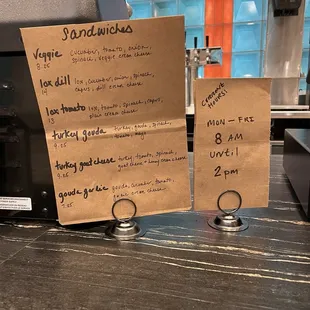 Sandwiches
Veggie cucumber, tomato, onion,
spinach, veggie cream cheese
lox dill lox, cucumber, onion, spinach,
capers, dill cream cheese
lox tomato lox, tomato, spinach, capers,
plain cream cheese
turkey gouda turkey, gouda, spinach,
turkey goat cheese turkey, tomato, spinach,
goat cheese + honey cream cheese
gouda garlic gouda, cucumber, tomato,
garlic cream cheese
HOURS:
MON - FRI
8 AM
until
2 pm